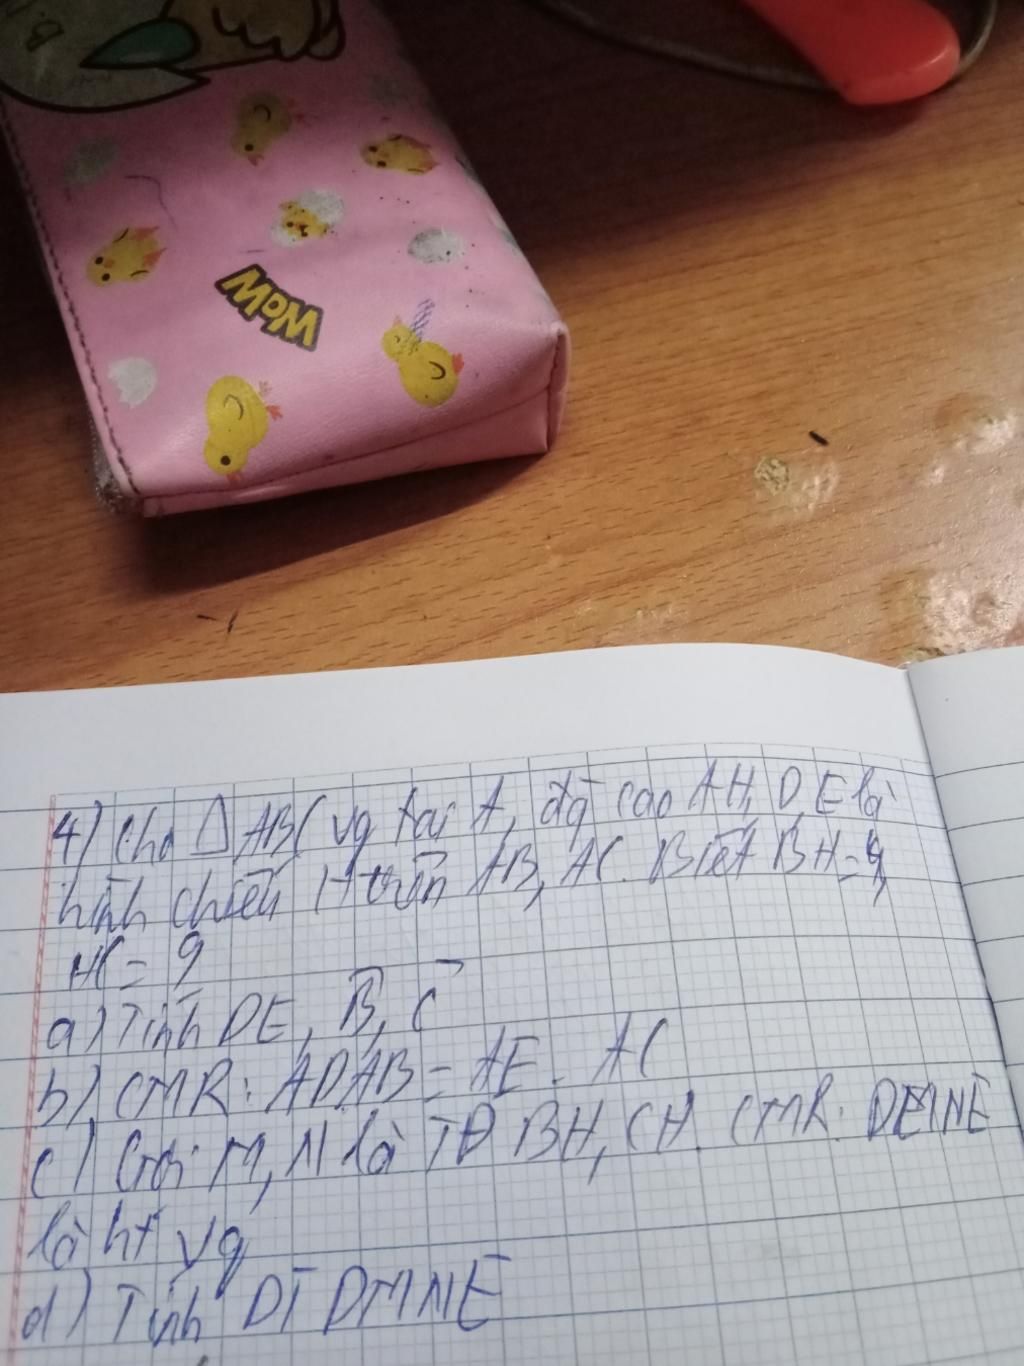 WOW
4) Cho Δ ABC vg tại A, đg cao AH, D, E là
hình chiếu H trên AB, AC. Biết BH = 4,
HC = 9
a) Tính DE, B, C
b) CMR: AD.AB = AE. AC
c) Gọi M, N là TĐ BH, CH. CMR: DEMNE
là ht vg
d) Tính DT DMNE